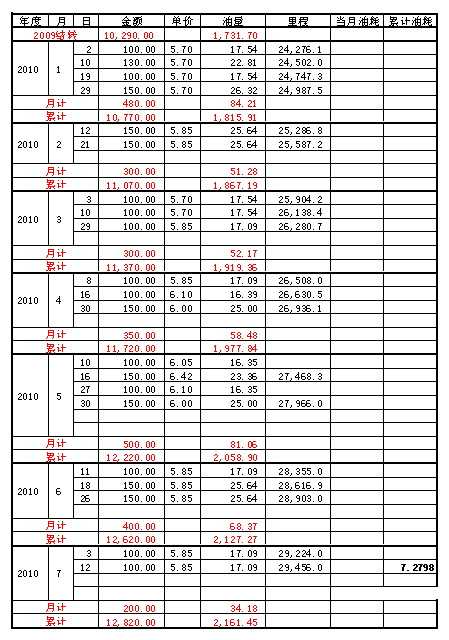 年度 月 日 金额 单价 油量 里程 当月油耗 累计油耗
2009结转 10,290.00 1,731.70
2 100.00 5.70 17.54 24,276.1
10 130.00 5.70 22.81 24,502.0
2010 1
19 100.00 5.70 17.54 24,747.3
29 150.00 5.70 26.32 24,987.5
月计 480.00 84.21
累计 10,770.00 1,815.91
12 150.00 5.85 25.64 25,286.8
2010 2 21 150.00 5.85 25.64 25,587.2
月计 300.00 51.28
累计 11,070.00 1,867.19
3 100.00 5.70 17.54 25,904.2
10 100.00 5.70 17.54 26,138.4
2010 3
29 100.00 5.85 17.09 26,280.7
月计 300.00 52.17
累计 11,370.00 1,919.36
8 100.00 5.85 17.09 26,508.0
16 100.00 6.10 16.39 26,630.5
2010 4
30 150.00 6.00 25.00 26,936.1
月计 350.00 58.48
累计 11,720.00 1,977.84
10 100.00 6.05 16.35
16 150.00 6.42 23.36 27,468.3
27 100.00 6.10 16.35
2010 5
30 150.00 6.00 25.00 27,966.0
月计 500.00 81.06
累计 12,220.00 2,058.90
11 100.00 5.85 17.09 28,355.0
18 150.00 5.85 25.64 28,616.9
2010 6
26 150.00 5.85 25.64 28,903.0
月计 400.00 68.37
累计 12,620.00 2,127.27
3 100.00 5.85 17.09 29,224.0
12 100.00 5.85 17.09 29,456.0 7.2798
2010 7
月计 200.00 34.18
累计 12,820.00 2,161.45